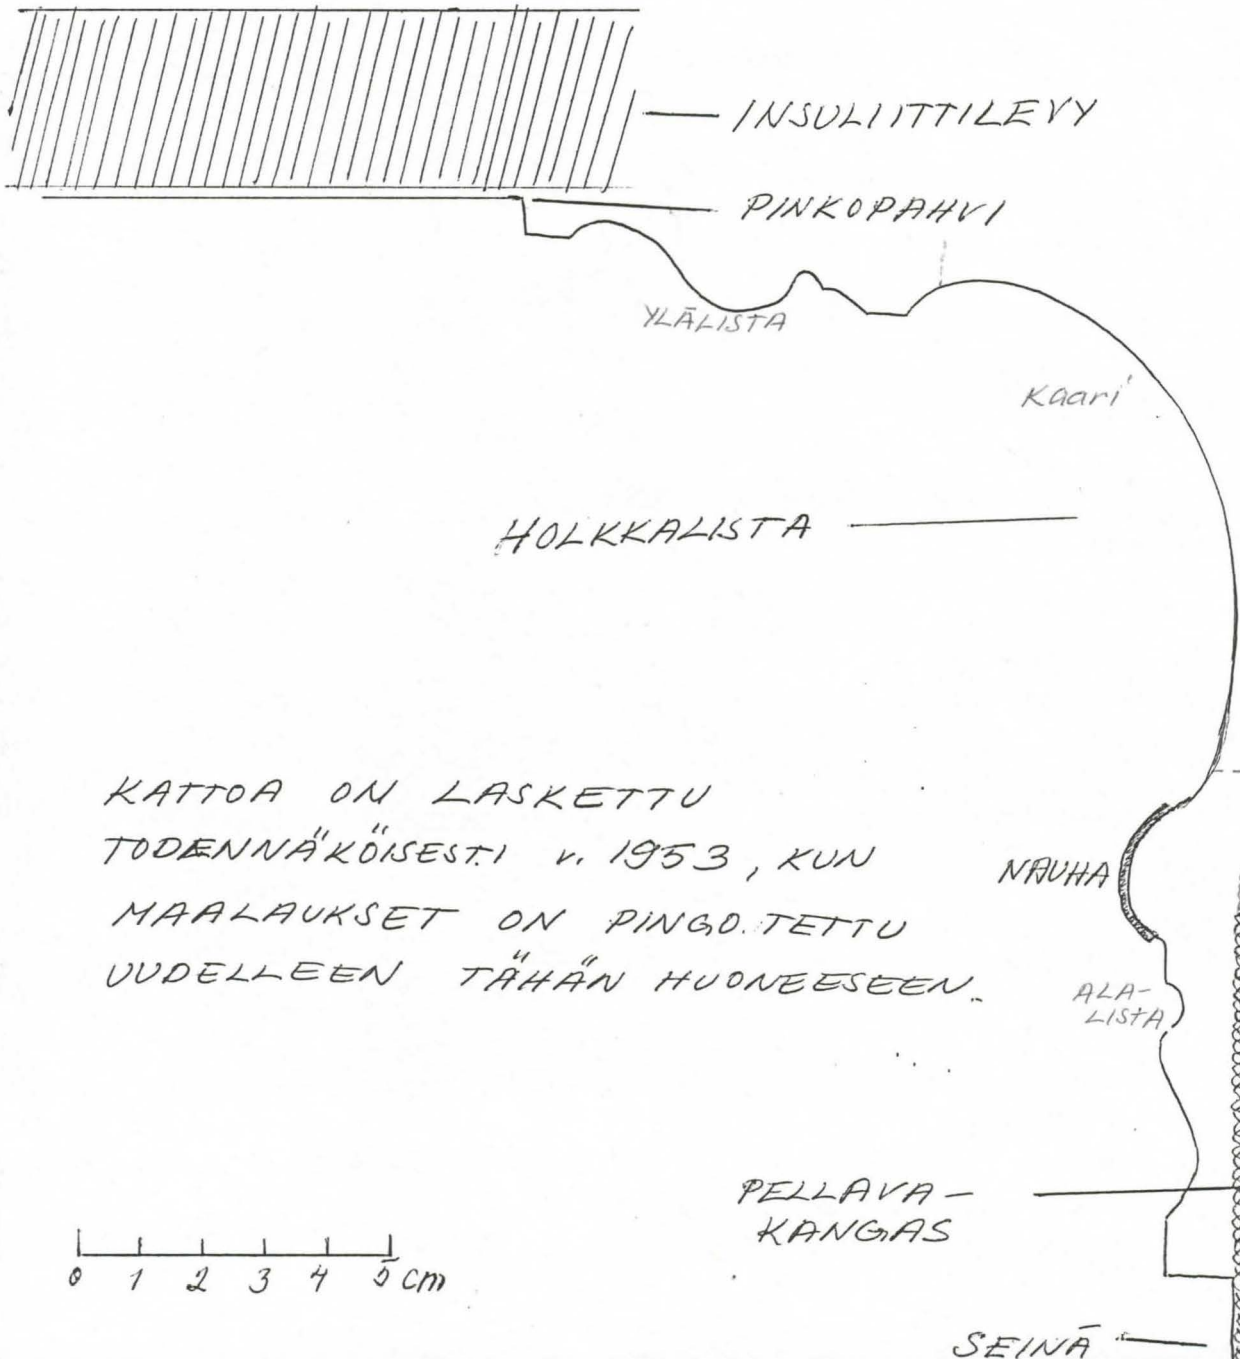 INSULIITTILEVY
PINKOPAHVI
YLÄLISTA
Kaari
HOLKKALISTA
KATTOA ON LASKETTU
TODENNÄKÖISESTI v. 1953, KUN
MAALAUKSET ON PINGOTETTU
UUDELLEEN TÄHÄN HUONEESEEN.
NAUHA
ALA-
LISTA
PELLAVA-
KANGAS
0 1 2 3 4 5 cm
SEINÄ